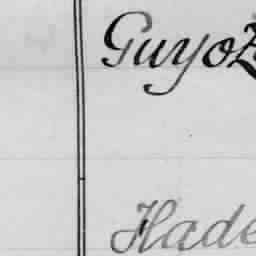 Guyoz
Hade